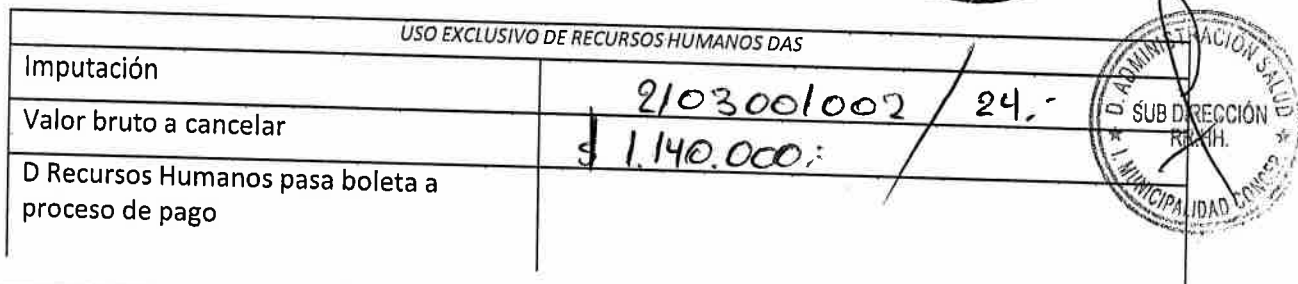 USO EXCLUSIVO DE RECURSOS HUMANOS DAS
Imputación 2103001002 / 24.-
Valor bruto a cancelar $ 1.140.000.-
D Recursos Humanos pasa boleta a
proceso de pago
D. ADMINISTRACIÓN SALUD
SUB DIRECCIÓN
RR.HH.
I. MUNICIPALIDAD CONCEP